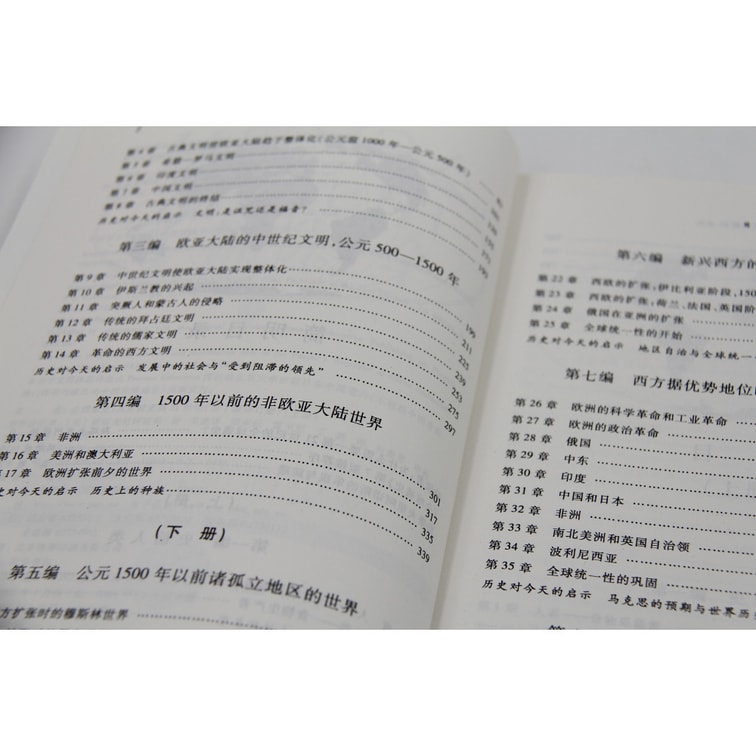 第4章 古典文明使欧亚大陆趋于整体化(公元前1000年—公元500年)
第5章 希腊—罗马文明
第6章 印度文明
第7章 中国文明
第8章 古典文明的终结
历史对今天的启示 文明:是诅咒还是福音?
第三编 欧亚大陆的中世纪文明,公元500—1500年
第9章 中世纪文明使欧亚大陆实现整体化 199
第10章 伊斯兰教的兴起 211
第11章 突厥人和蒙古人的侵略 225
第12章 传统的拜占廷文明 239
第13章 传统的儒家文明 253
第14章 革命的西方文明 275
历史对今天的启示 发展中的社会与“受到阻滞的领先” 297
第四编 1500年以前的非欧亚大陆世界
第15章 非洲 301
第16章 美洲和澳大利亚 317
17章 欧洲扩张前夕的世界 335
史对今天的启示 历史上的种族 339
(下 册)
第五编 公元1500年以前诸孤立地区的世界
方扩张时的穆斯林世界
第六编 新兴西方的
第22章 西欧的扩张:伊比利亚阶段,150
第23章 西欧的扩张:荷兰、法国、英国阶
第24章 俄国在亚洲的扩张
第25章 全球统一性的开始
历史对今天的启示 地区自治与全球统一
第七编 西方据优势地位
第26章 欧洲的科学革命和工业革命
第27章 欧洲的政治革命
第28章 俄国
第29章 中东
第30章 印度
第31章 中国和日本
第32章 非洲
第33章 南北美洲和英国自治领
第34章 波利尼西亚
第35章 全球统一性的巩固
历史对今天的启示 马克思的预期与世界历